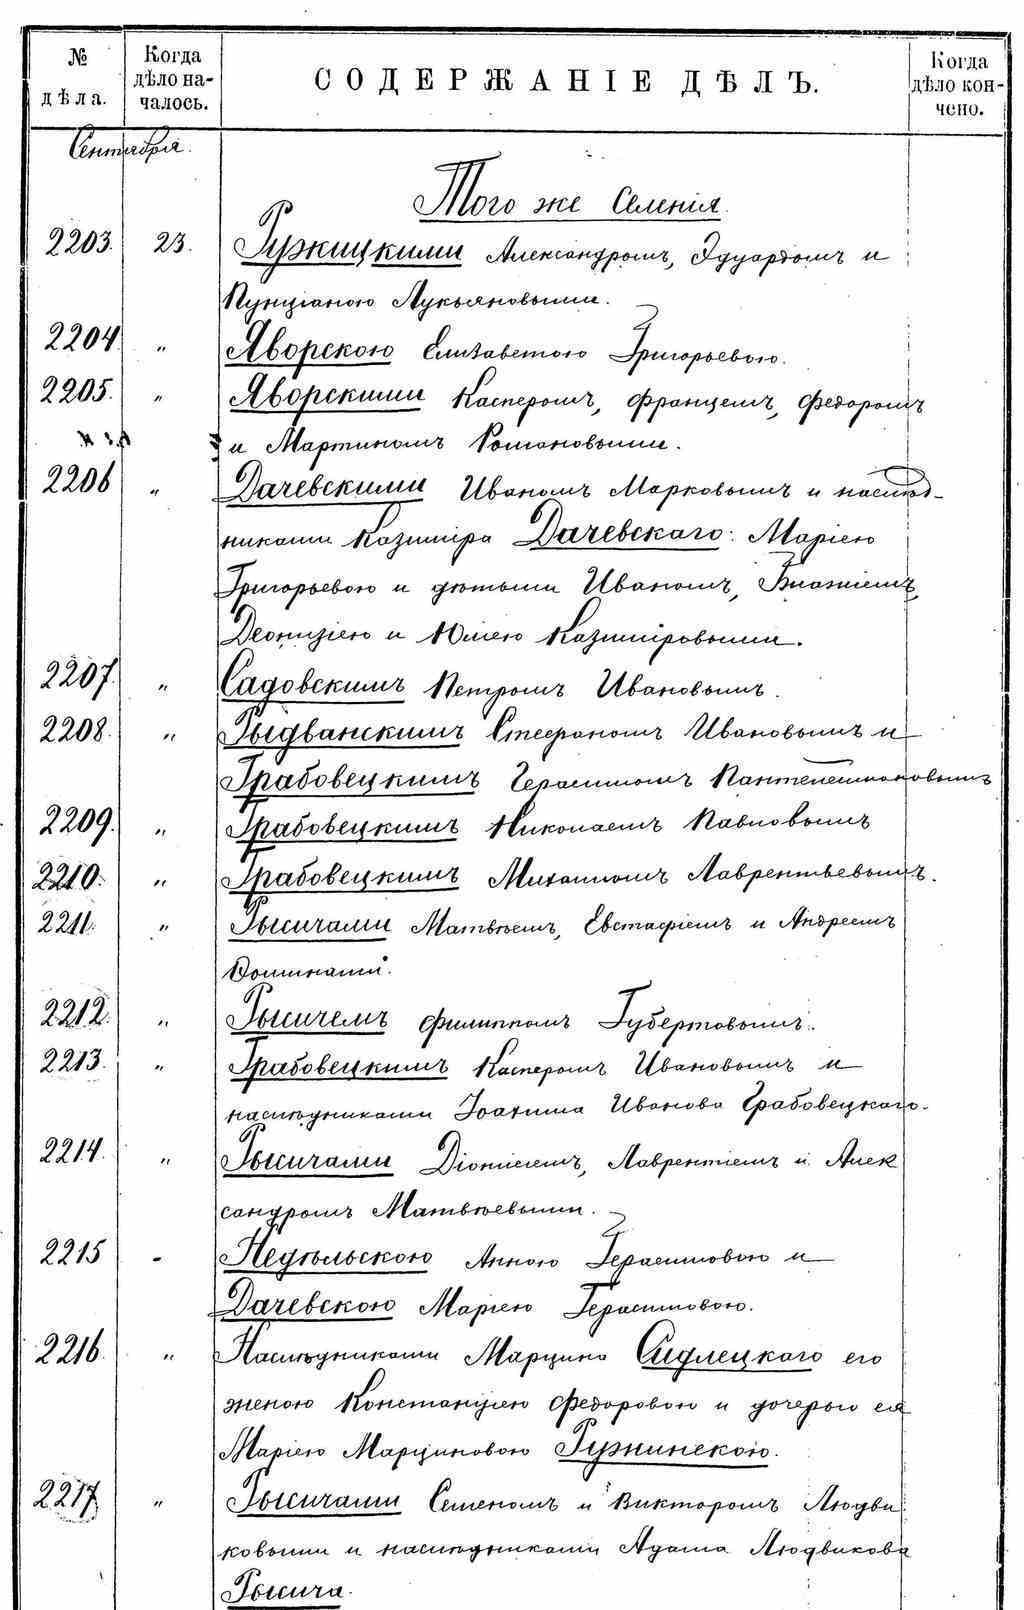 № дѣла.
Когда дѣло началось.
СОДЕРЖАНІЕ ДѢЛЪ.
Когда дѣло кончено.
Сентября.
Того же Селенія.
2203. 23. Ружицкими Александромъ, Эдуардомъ и
Лукьяновыми.
2204. " Яворскою Елизаветою Григорьевою.
2205. " Яворскими Касперомъ, Францемъ, Федоромъ
и Мартиномъ Романовыми.
2206 " Дачевскими Иваномъ Марковымъ и наслѣд-
никами Казиміра Дачевскаго: Маріею
Григорьевою и дѣтьми Иваномъ, Игнатіемъ,
Деонизіею и Юліею Казиміровыми.
2207. " Садовскимъ Петромъ Ивановымъ.
2208. " Рыдванскимъ Стефаномъ Ивановымъ и
Грабовецкимъ Герасимомъ Пантелеимоновымъ
2209. " Грабовецкимъ Николаемъ Павловымъ
2210. " Грабовецкимъ Михаиломъ Лаврентьевымъ.
2211. " Рысичами Матвѣемъ, Евстафіемъ и Андреемъ
2212. " Рысичемъ Филиппомъ Губертовымъ.
2213. " Грабовецкимъ Касперомъ Ивановымъ и
наслѣдниками Іоахима Иванова Грабовецкаго.
2214. " Рысичами Діонисіемъ, Лаврентіемъ и Алек
сандромъ Матвѣевыми.
2215 - Недѣльскою Анною Герасимовою и
Дачевскою Маріею Герасимовою.
2216. " Наслѣдниками Марцина Сидлецкаго его
женою Констанціею Федоровою и дочерью ея
Маріею Марциновою Ружинскою.
2217 " Рысичами Семеномъ и Викторомъ Людви
ковыми и наслѣдниками Адама Людвикова
Рысича.